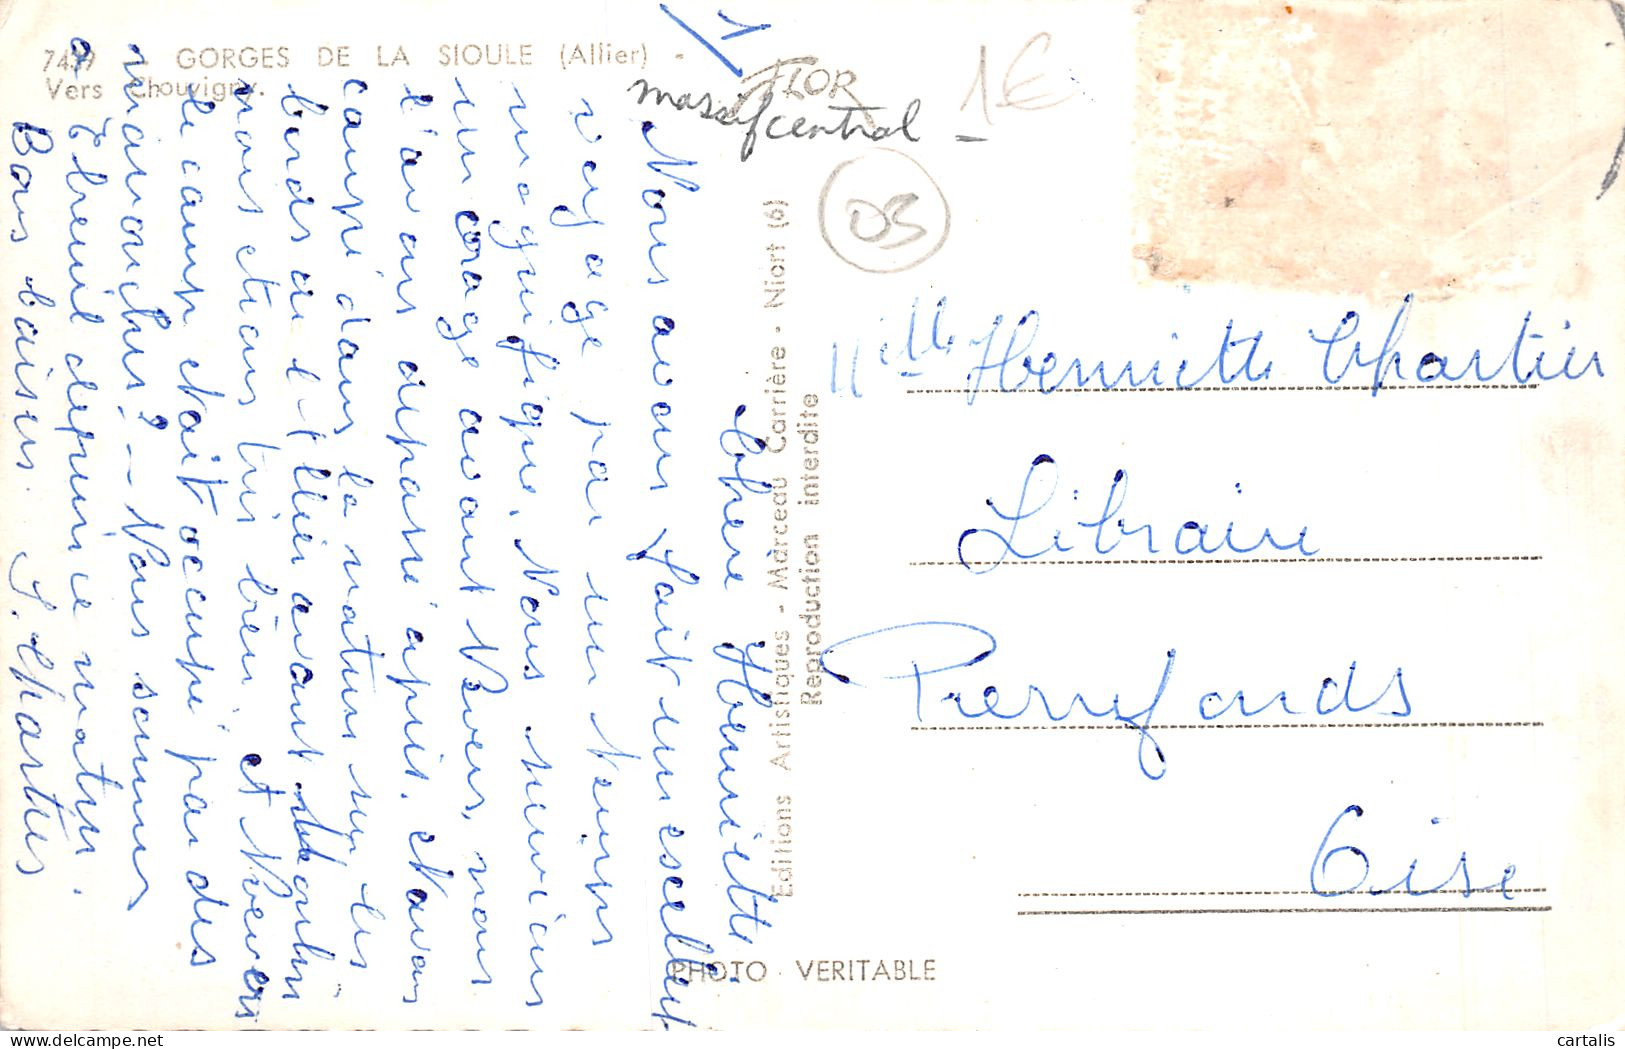 7439 - GORGES DE LA SIOULE (Allier) -
Vers Chouvigny.
FLOR
massif central
1€
03
Chère Henriette
Nous avons fait un excellent
voyage par un temps
magnifique. Nous
un orage avant Nevers, nous
l'avons dépassé après. et avons
campé dans la nature sur les
bords de l'Allier avant Moulins
nous étions très bien, et Nevers
le camp était occupé par des
manouches? - Nous sommes
à Ebreuil depuis ce matin.
Bons baisers. J. Chartier
Editions Artistiques - Marceau Carrière - Niort (6)
Reproduction interdite
PHOTO VERITABLE
Melle Henriette Chartier
Libraire
Pierrefonds
Oise
delcampe.net
cartalis